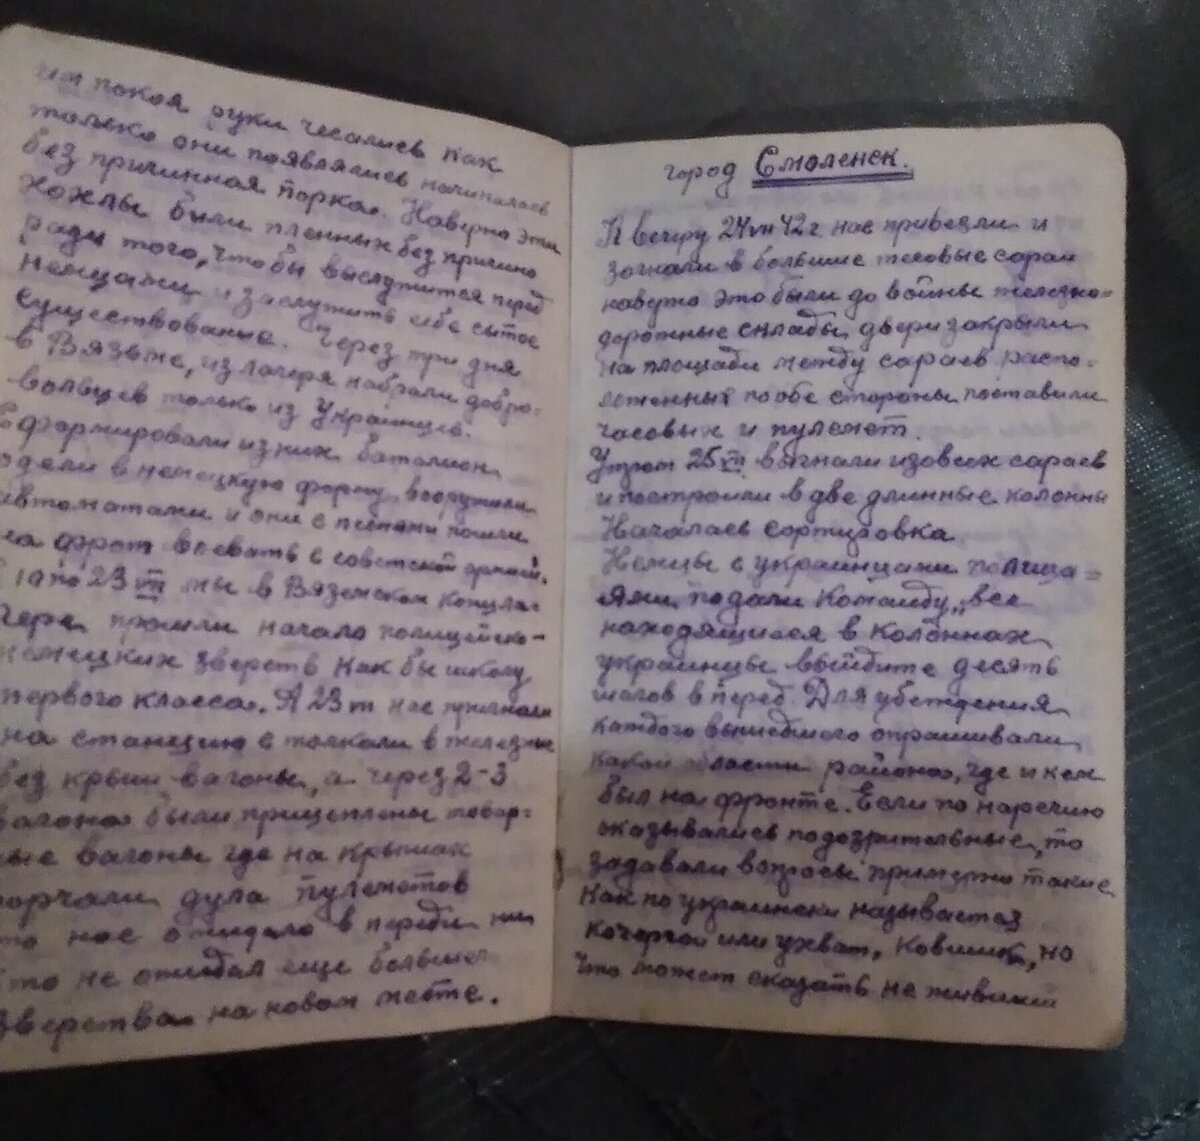 им покоя руки чесались как
только они появлялись начиналась
без причинная порка. Наверно эти
хохлы били пленных без причино
ради того, чтобы выслужится перед
немцами и заслужить себе сытое
существование. Через три дня
в Вязьме, из лагеря набрали добро-
вольцев только из Украинцев.
сформировали из них батальон
одели в немецкую форму, вооружили
автоматами и они с песнями пошли
на фрот воевать с советской армией.
10 по 23 VII мы в Вяземском концла-
гере прошли начало полицейско-
немецких зверств как бы школу
первого класса. А 23 VII нас пригнали
на станцию с толкали в железные
без крыш вагоны, а через 2-3
вагона были прицеплены товар-
ные вагоны где на крышах
торчали дула пулеметов
что нас ожидало в переди ни
кто не ожидал еще больших
зверства на новом месте.
город Смоленск.
К вечеру 24 VII 42 г. нас привезли и
загнали в большие тесовые сараи
наверно это были до войны железно-
дорожные склады, двери закрыли
на площади между сараев распо-
ложенных по обе стороны поставили
часовых и пулемет.
Утром 25 VII выгнали из всех сараев
и построили в две длинные колонны
Началась сортировка.
Немцы с украинцами полица-
ями, подали команду, „все
находящиеся в колоннах
украинцы выйдите десять
шагов в перед. Для убеждения
каждого вышедшего опрашивали
какой области района, где и кем
был на фронте. Если по наречию
оказывались подозрительные, то
задавали вопросы примерно такие
Как по украински называется
кочерга или ухват, Ковшик, но
что может сказать не живший